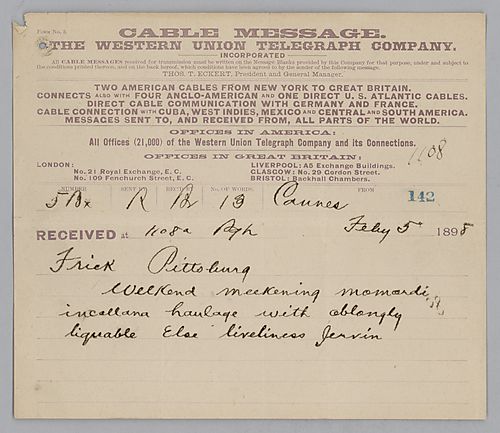 Form No. 3.
CABLE MESSAGE.
THE WESTERN UNION TELEGRAPH COMPANY.
INCORPORATED
All CABLE MESSAGES received for transmission must be written on the Message Blanks provided by this Company for that purpose, under and subject to
the conditions printed thereon, and on the back hereof, which conditions have been agreed to by the sender of the following message.
THOS. T. ECKERT, President and General Manager.
TWO AMERICAN CABLES FROM NEW YORK TO GREAT BRITAIN.
CONNECTS ALSO WITH FOUR ANGLO-AMERICAN AND ONE DIRECT U. S. ATLANTIC CABLES.
DIRECT CABLE COMMUNICATION WITH GERMANY AND FRANCE.
CABLE CONNECTION WITH CUBA, WEST INDIES, MEXICO AND CENTRAL AND SOUTH AMERICA.
MESSAGES SENT TO, AND RECEIVED FROM, ALL PARTS OF THE WORLD.
OFFICES IN AMERICA:
All Offices (21,000) of the Western Union Telegraph Company and its Connections.
1108
OFFICES IN GREAT BRITAIN:
LONDON: LIVERPOOL: A5 Exchange Buildings.
No. 21 Royal Exchange, E. C. GLASGOW: No. 29 Gordon Street.
No. 109 Fenchurch Street, E. C. BRISTOL: Backhall Chambers.
NUMBER SENT BY REC'D BY No. OF WORDS. FROM
K 13 Cannes 142
RECEIVED at 1108a Pgh Feby 5 1898
Frick Pittsburg
Welkend meekening momordi
incollana haulage with oblongly
liquable Else liveliness Jervin